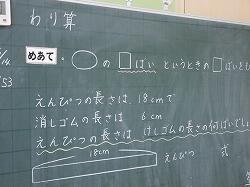 わり算
めあて ・ ◯の□ばい というときの□ばいを
えんぴつの長さは 18cmで
消しゴムの長さは 6cm
えんぴつの長さは けしゴムの何ばいでしょ
18cm
えんぴつ 式